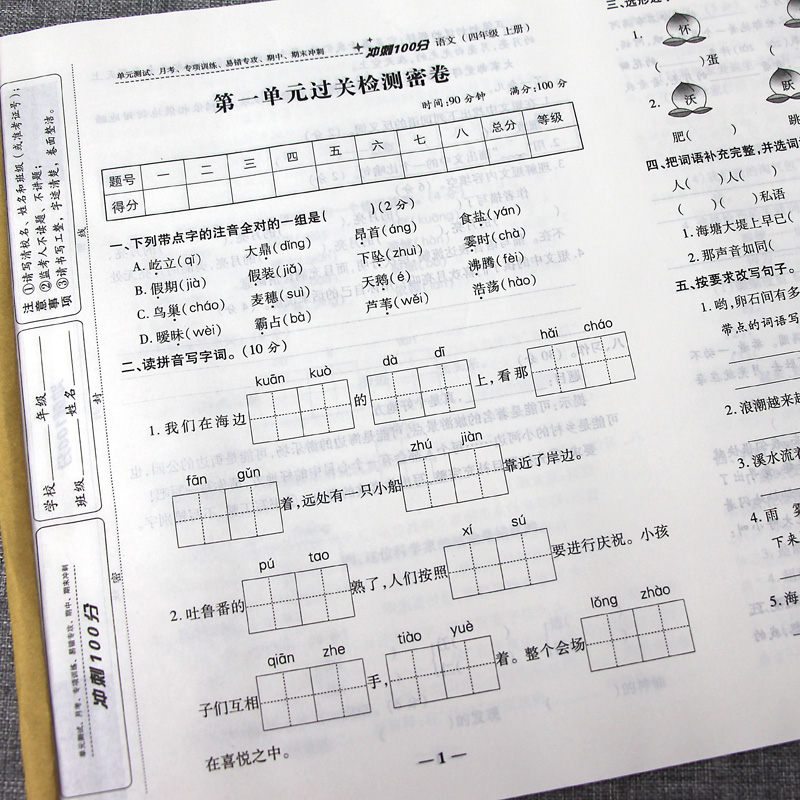 单元测试、月考、专项训练、易错专攻、期中、期末冲刺 冲刺100分 语文(四年级 上册)
第一单元过关检测密卷
时间:90分钟 满分:100分
题号 一 二 三 四 五 六 七 八 总分 等级
得分
一、下列带点字的注音全对的一组是( )(2分)
A.屹立(qī) 大鼎(dǐng) 昂首(áng) 食盐(yán)
B.假期(jià) 假装(jiǎ) 下坠(zhuì) 霎时(chà)
C.鸟巢(cháo) 麦穗(suì) 天鹅(é) 沸腾(fèi)
D.暧昧(wèi) 霸占(bà) 芦苇(wěi) 浩荡(hào)
二、读拼音写字词。(10分)
kuān kuò dà dī hǎi cháo
1.我们在海边 的 上,看那
fān gǔn zhú jiàn
着,远处有一只小船 靠近了岸边。
pú tao xí sú
2.吐鲁番的 熟了,人们按照 要进行庆祝。小孩
qiān zhe tiào yuè lǒng zhào
子们互相 手, 着。整个会场
在喜悦之中。
—1—
注意事项
①请写清校名、姓名和班级(或准考证号);
②监考人不读题、不讲题;
③请书写工整,字迹清楚,卷面整洁。
学校 年级
班级 姓名
线
封
密
单元测试、月考、专项训练、易错专攻、期中、期末冲刺
冲刺100分
1. 怀
( )蛋 (
2. 沃 跃
肥( ) 跳
四、把词语补充完整,并选词
人( )人( )
( )( )私语
1.海塘大堤上早已(
2.那声音如同(
五、按要求改写句子。
1.哟,卵石间有多
带点的词语写
2.浪潮越来越
3.溪水流着
4.雨
下来
5.海